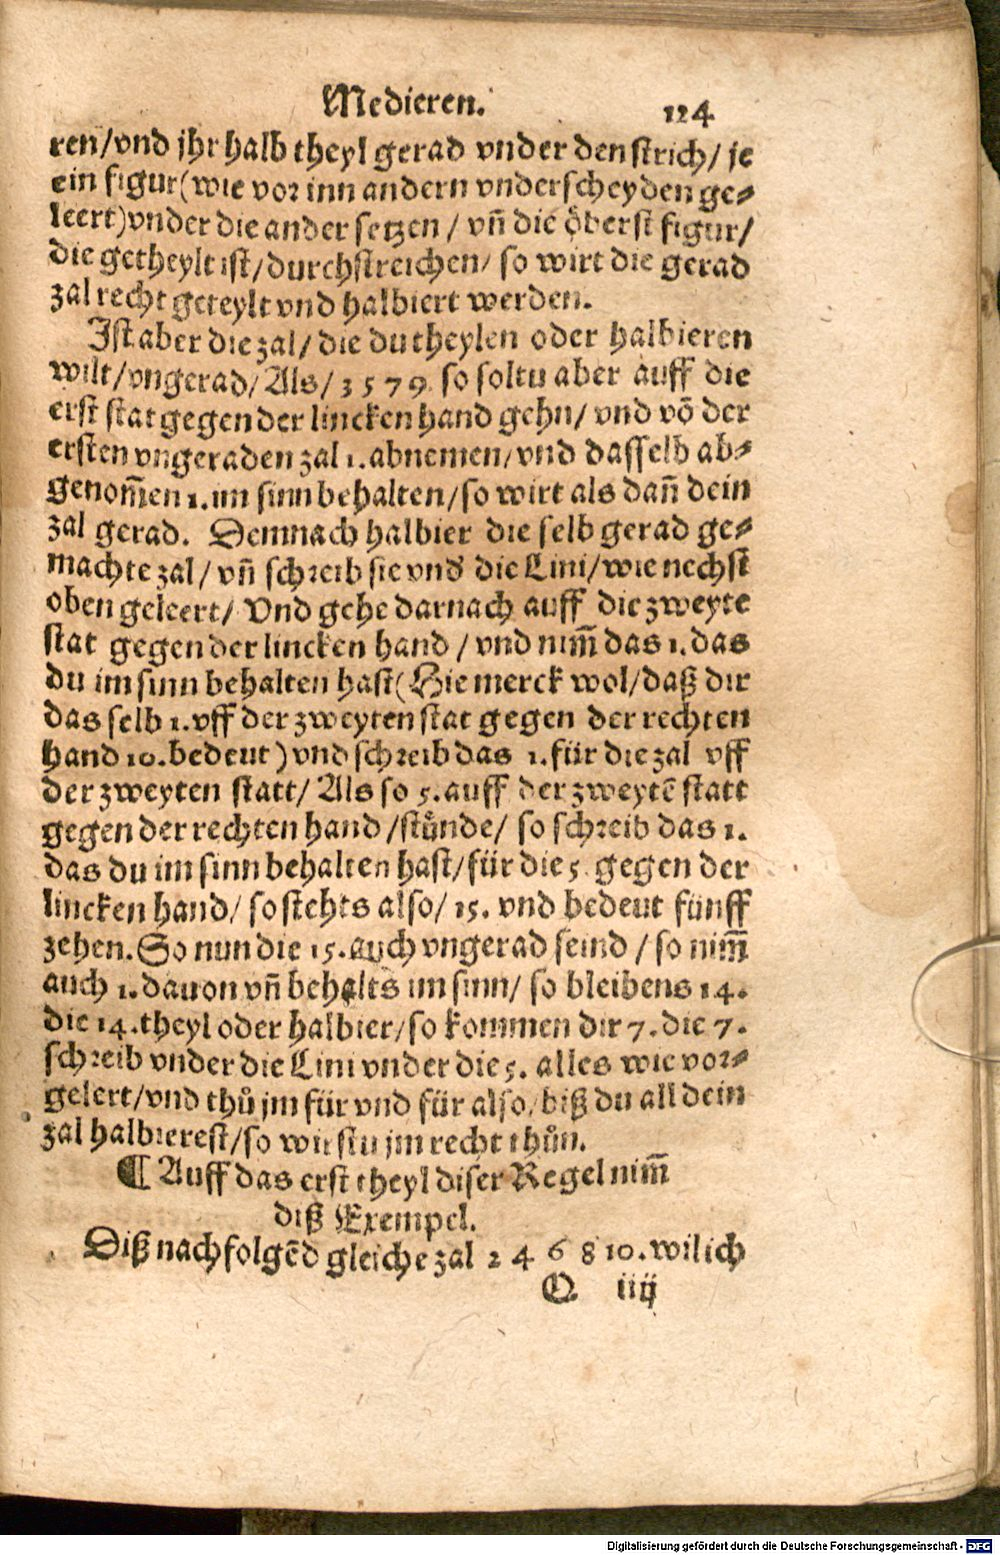 Medieren. 124
ren/vnd jhr halb theyl gerad vnder den strich/ je
ein figur (wie vor inn andern vnderscheyden ge⸗
leert) vnder die ander setzen / vñ die öberst figur/
die getheylt ist/durchstreichen/ so wirt die gerad
zal recht geteylt vnd halbiert werden.
Ist aber die zal/ die du theylen oder halbieren
wilt/vngerad/Als/ 3 5 7 9 so soltu aber auff die
erst stat gegen der lincken hand gehn/ vnd võ der
ersten vngeraden zal 1. abnemen/vnd dasselb ab⸗
genom̃en 1. im sinn behalten/so wirt als dañ dein
zal gerad. Demnach halbier die selb gerad ge⸗
machte zal/ vñ schreib sie vnď die Lini/wie nechst
oben geleert/ Vnd gehe darnach auff die zweyte
stat gegen der lincken hand / vnd nim̃ das 1. das
du im sinn behalten hast (Hie merck wol/daß dir
das selb 1. vff der zweyten stat gegen der rechten
hand 10. bedeut) vnd schreib das 1. für die zal vff
der zweyten statt/ Als so 5. auff der zweytẽ statt
gegen der rechten hand /stünde/ so schreib das 1.
das du im sinn behalten hast/für die 5 gegen der
lincken hand/ so stehts also/ 15. vnd bedeut fünff
zehen. So nun die 15. auch vngerad seind / so nim̃
auch 1. dauon vñ behalts im sinn/ so bleibens 14.
die 14. theyl oder halbier/so kommen dir 7. die 7.
schreib vnder die Lini vnder die 5. alles wie vor⸗
gelert/vnd thů jm für vnd für also/biß du all dein
zal halbierest/so wirstu jm recht thůn.
¶ Auff das erst theyl diser Regel nim̃
diß Exempel.
Diß nachfolgẽd gleiche zal 2 4 6 8 10. wil ich
Q iiij
Digitalisierung gefördert durch die Deutsche Forschungsgemeinschaft - DFG